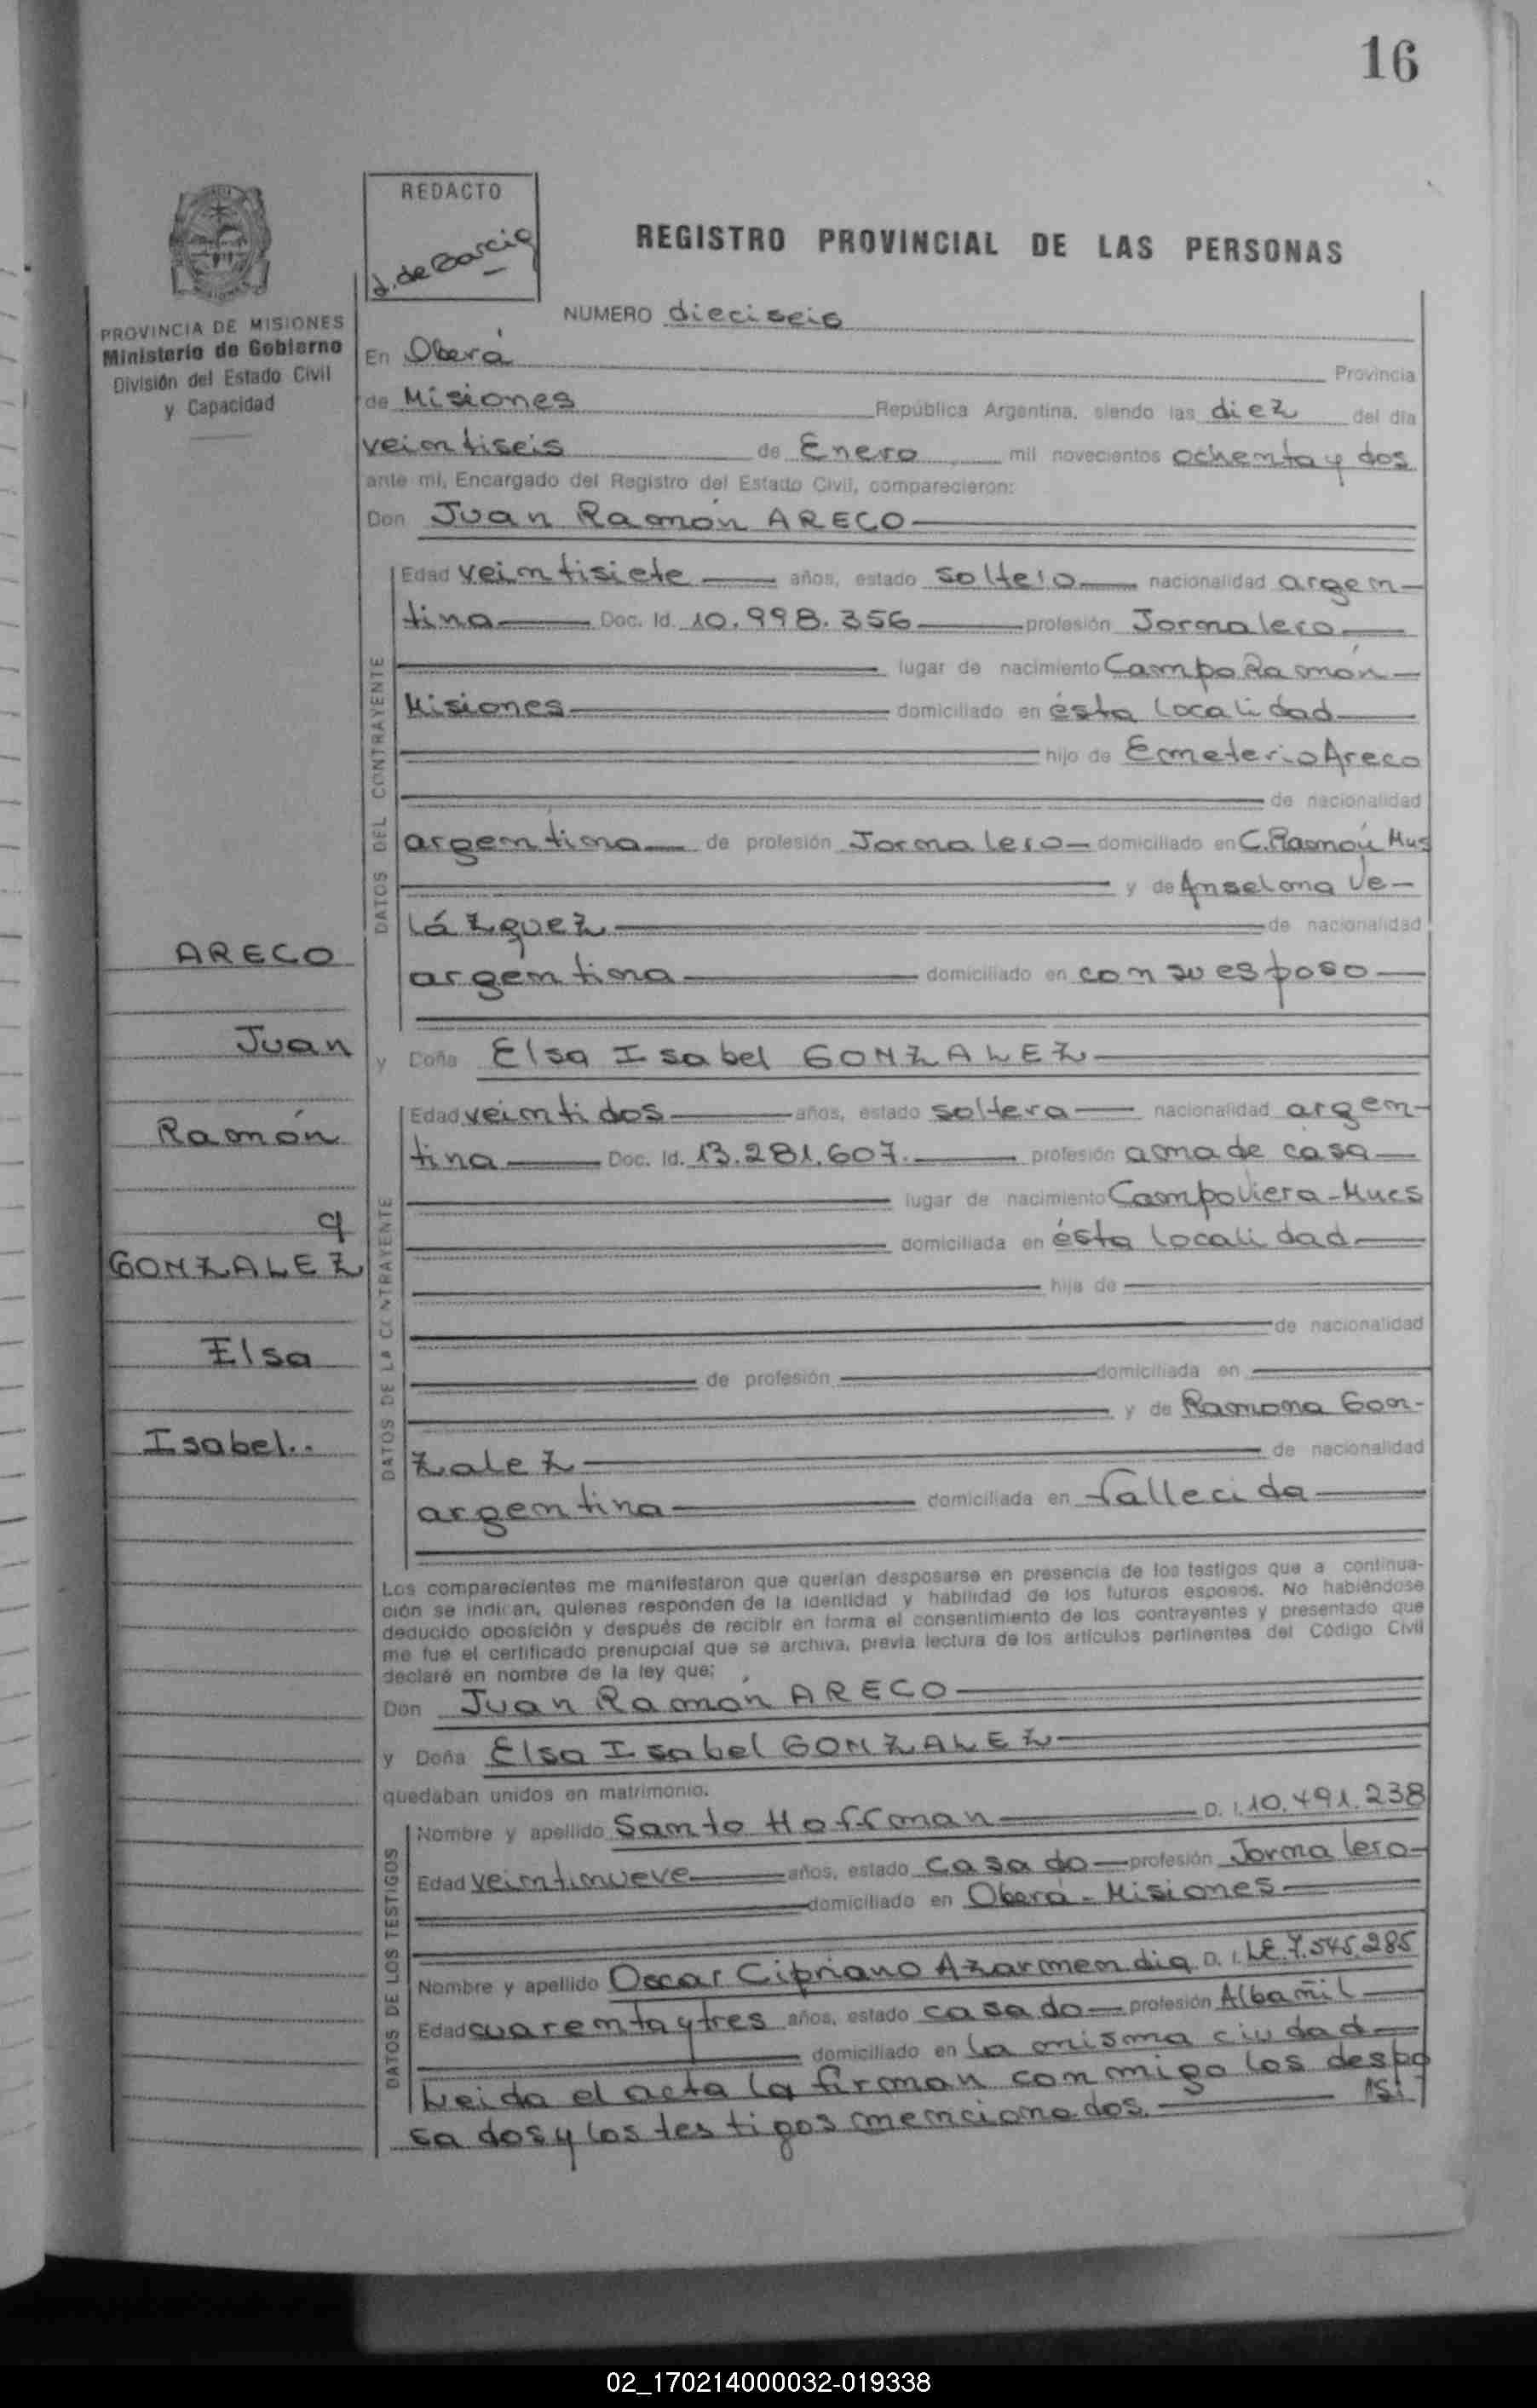 16
REDACTO
J. de Garcia
REGISTRO PROVINCIAL DE LAS PERSONAS
PROVINCIA DE MISIONES
Ministerio de Gobierno
División del Estado Civil
y Capacidad
NUMERO dieciseis
En Oberá Provincia
de Misiones República Argentina, siendo las diez del día
veintiseis de Enero mil novecientos ochenta y dos
ante mí, Encargado del Registro del Estado Civil, comparecieron:
Don Juan Ramón ARECO
DATOS DEL CONTRAYENTE
Edad veintisiete años, estado soltero nacionalidad argen-
tina Doc. Id. 10.998.356 profesión Jornalero
lugar de nacimiento Campo Ramón
Misiones domiciliado en ésta localidad
hijo de Ermeterio Areco
de nacionalidad
argentina de profesión Jornalero domiciliado en C. Ramón Mns
y de Anselma Ve-
lázquez de nacionalidad
argentina domiciliado en con su esposo
y Doña Elsa Isabel GONZALEZ
DATOS DE LA CONTRAYENTE
Edad veintidos años, estado soltera nacionalidad argen-
tina Doc. Id. 13.281.607. profesión ama de casa
lugar de nacimiento Campo Viera - Mnes
domiciliada en ésta localidad
hija de
de nacionalidad
de profesión domiciliada en
y de Ramona Gon-
zalez de nacionalidad
argentina domiciliada en fallecida
ARECO
Juan
Ramón
y
GONZALEZ
Elsa
Isabel..
Los comparecientes me manifestaron que querían desposarse en presencia de los testigos que a continua-
ción se indican, quienes responden de la identidad y habilidad de los futuros esposos. No habiéndose
deducido oposición y después de recibir en forma el consentimiento de los contrayentes y presentado que
me fue el certificado prenupcial que se archiva, previa lectura de los artículos pertinentes del Código Civil
declaré en nombre de la ley que:
Don Juan Ramón ARECO
y Doña Elsa Isabel GONZALEZ
quedaban unidos en matrimonio.
DATOS DE LOS TESTIGOS
Nombre y apellido Santo Hoffman D. I. 10.491.238
Edad veintinueve años, estado casado profesión Jornalero
domiciliado en Oberá - Misiones
Nombre y apellido Oscar Cipriano Azarmendia D. I. LE 7.545.285
Edad cuarenta y tres años, estado casado profesión Albañil
domiciliado en la misma ciudad
Leida el acta la firman conmigo los despo
sados y los testigos mencionados.
02_170214000032-019338